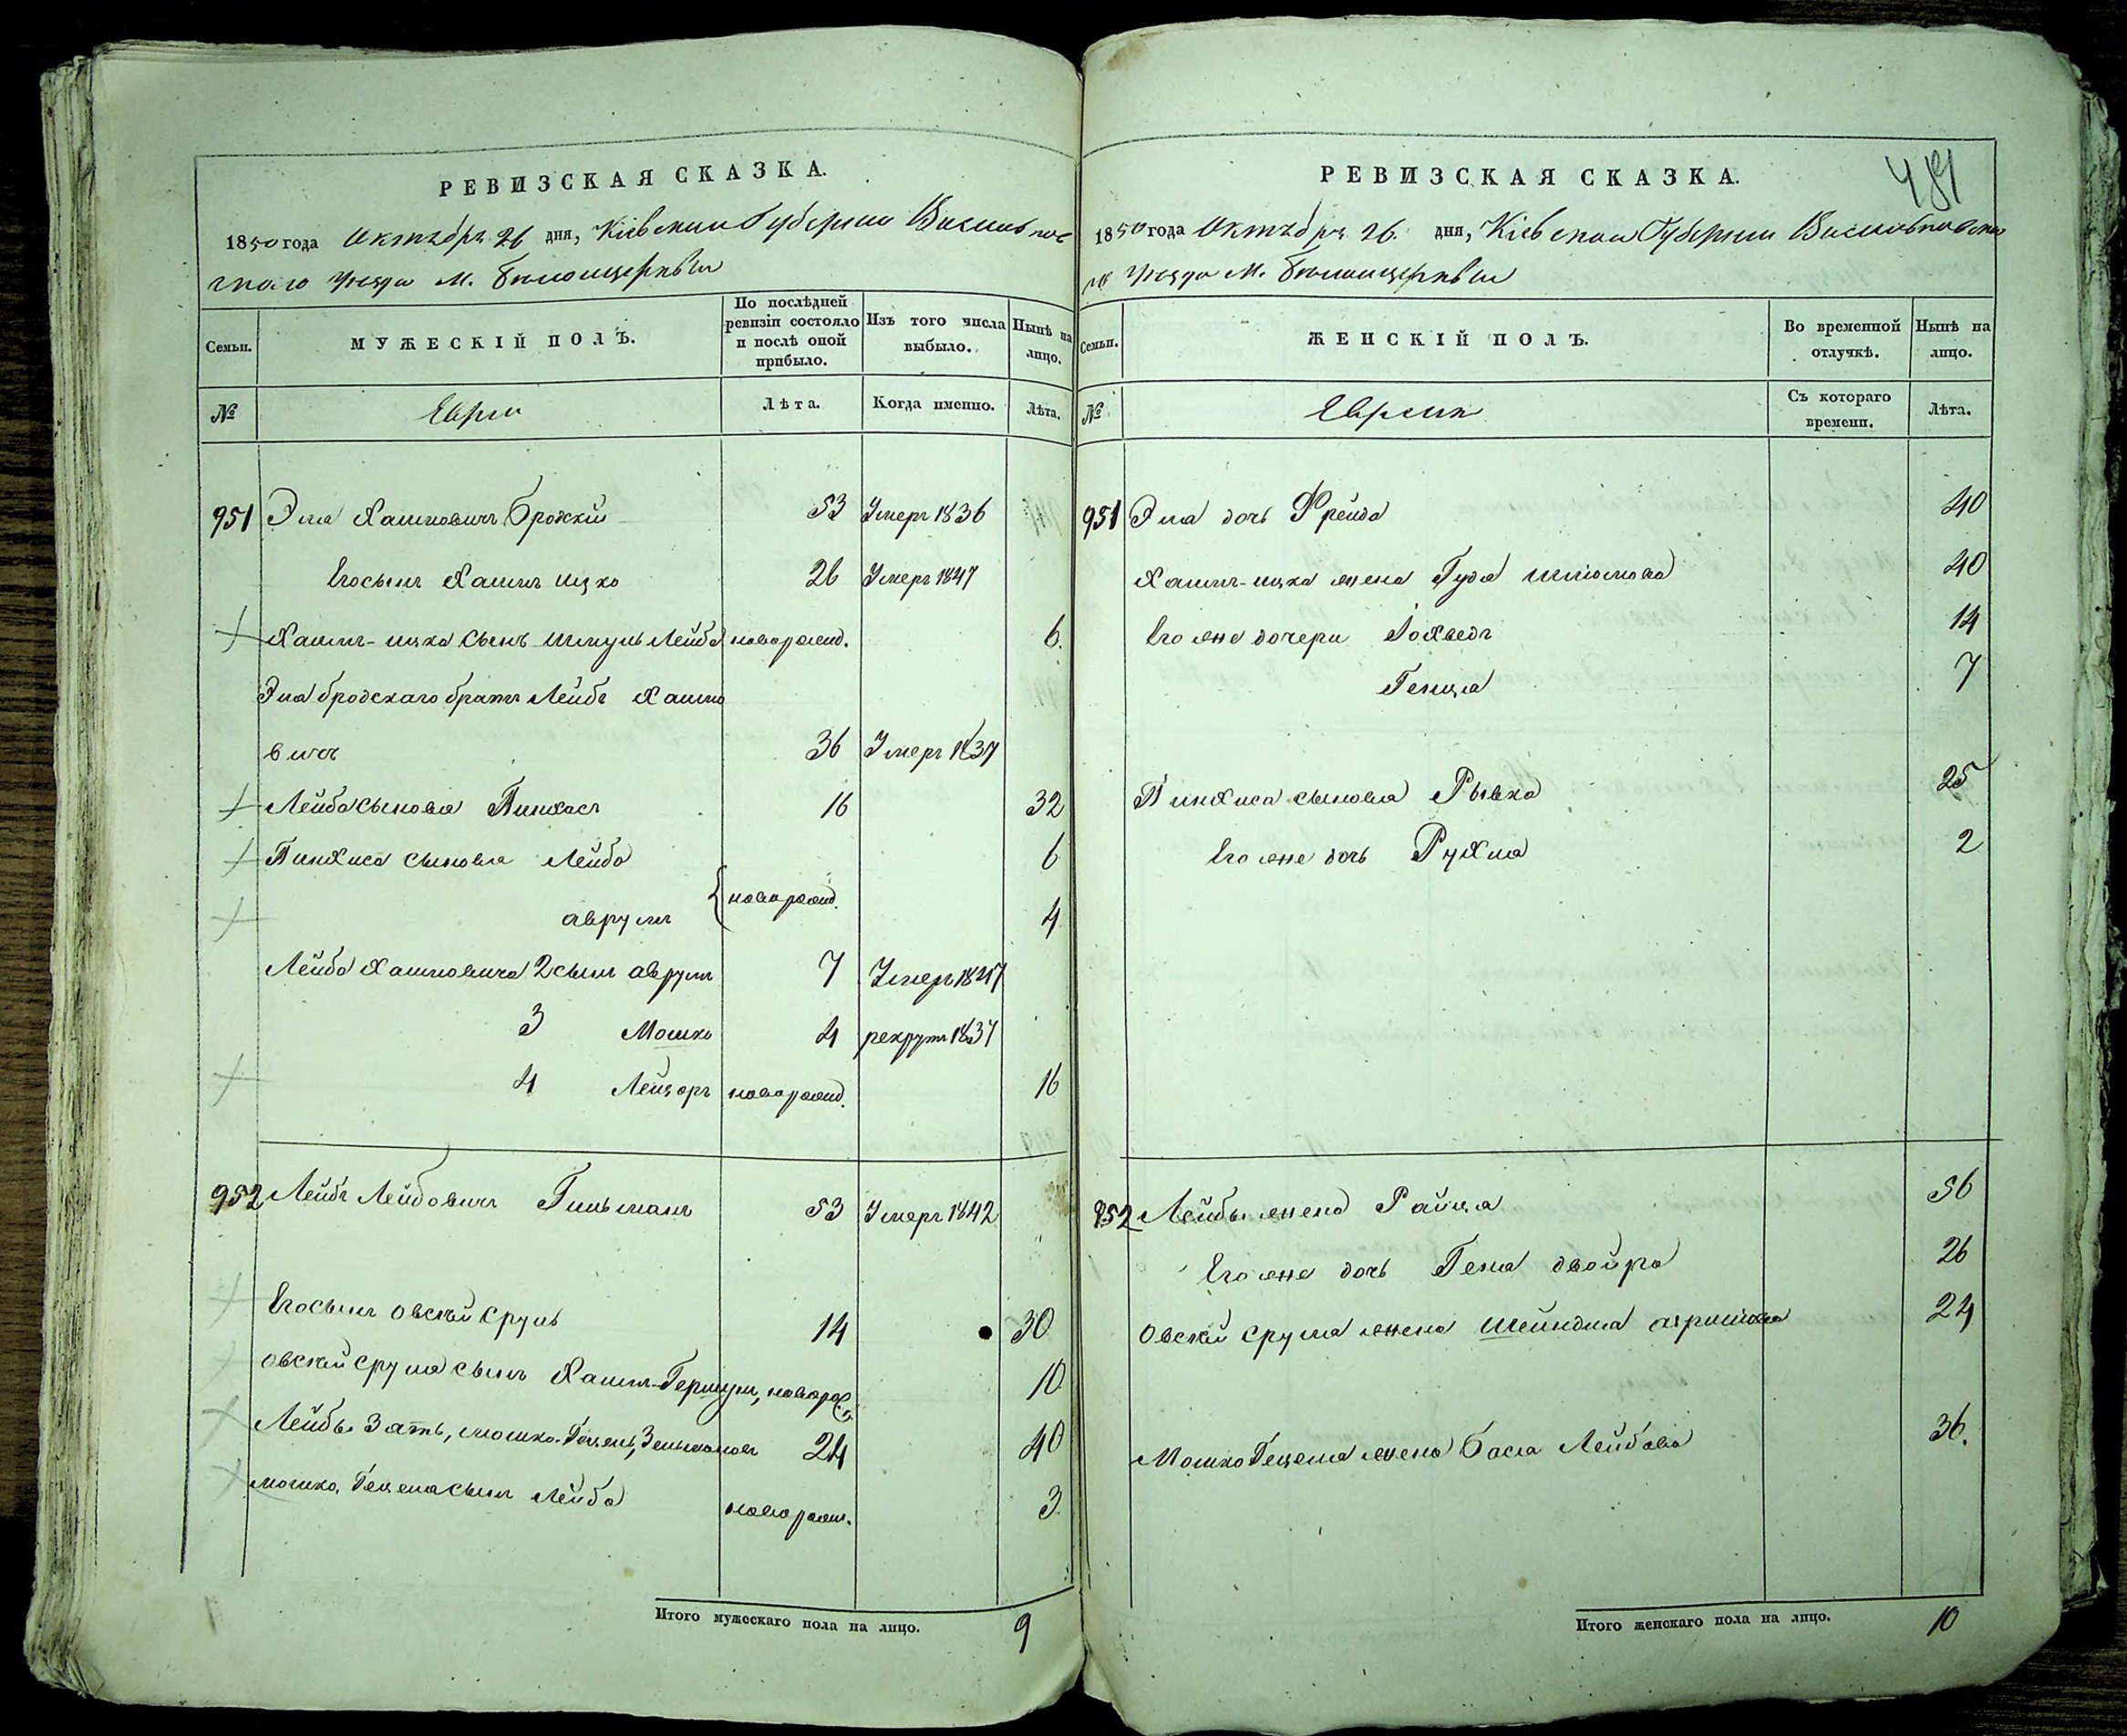 РЕВИЗСКАЯ СКАЗКА.
1850 года Октября 26 дня, Кіевской Губерніи Васильков
скаго Уезда М. Белоцерквы
Семьи.
МУЖЕСКІЙ ПОЛЪ.
По послѣдней ревизіи состояло и послѣ оной прибыло.
Изъ того числа выбыло.
Нынѣ на лицо.
№
Евреи
Лѣта.
Когда именно.
Лѣта.
951 Эла Хаимовичъ Бродскій 53 Умеръ 1836
Его сынъ Хаимъ Ицко 26 Умеръ 1847
Хаимъ-ицка сынъ Шмуль Лейба новорожд. 6.
Эла бродскаго братъ Лейбъ Хаимо
вичъ 36 Умеръ 1837
Лейба сыновья Пинхасъ 16 32
Пинхиса сыновья Лейба 6
аврумъ { новорожд. 4
Лейба Хаимовича 2 сынъ аврумъ 7 Умеръ 1847
3 Мошко 4 рекрутъ 1837
4 Лейзоръ новорожд. 16
952 Лейбъ Лейбовичъ Гильманъ 53 Умеръ 1842
Его сынъ овсѣй сруль 14 30
овсѣй сруля сынъ Хаимъ-Гершунъ, новорож 10
Лейбы Зять, мошко-Гецель 24 40
мошко Гецеля сынъ Лейба новорож. 3.
Итого мужескаго пола на лицо. 9
481
РЕВИЗСКАЯ СКАЗКА.
1850 года Октября 26. дня, Кіевской Губерніи Васильковска
го Уезда М. Белоцерквы
Семьи.
ЖЕНСКІЙ ПОЛЪ.
Во временной отлучкѣ.
Нынѣ на лицо.
№
Еврейки
Съ котораго времени.
Лѣта.
951 Эла дочь Фрейда 40
Хаимъ-ицка жена Гудя Шліомова 40
Его же дочери Іохведъ 14
Генця 7
Пинхиса сыновья Рывка 25
Его же дочь Рухля 2
952 Лейбы жена Райца 56
Его же дочь Геня двойра 26
Овсѣй сруля жена Шейндля 24
Мошко Гецеля жена Бася Лейбова 36.
Итого женскаго пола на лицо. 10